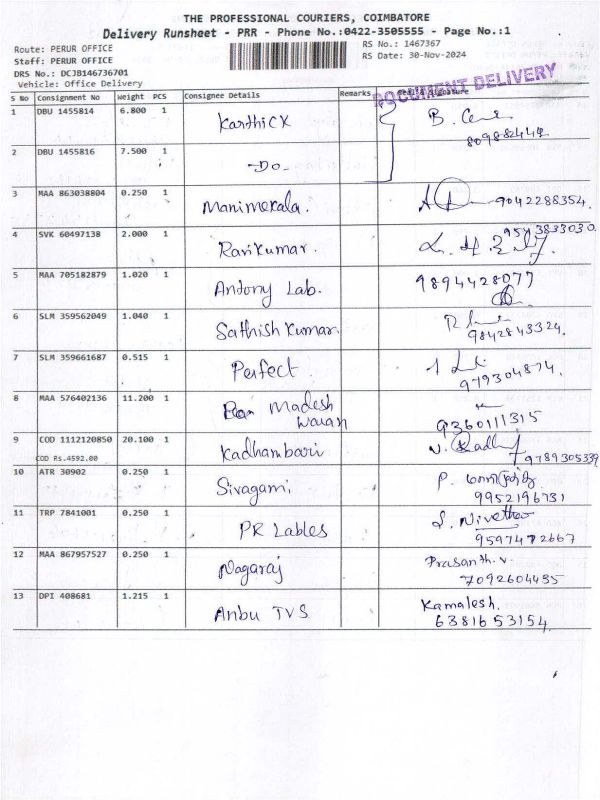 THE PROFESSIONAL COURIERS, COIMBATORE
Delivery Runsheet - PRR - Phone No.:0422-3505555 - Page No.:1
Route: PERUR OFFICE
RS No.: 1467367
Staff: PERUR OFFICE
RS Date: 30-Nov-2024
DRS No.: DCJB146736701
Vehicle: Office Delivery
DOCUMENT DELIVERY
S No Consignment No Weight PCS Consignee Details Remarks Seal & Signature
1 DBU 1455814 6.800 1 Karthi CX B.
2 DBU 1455816 7.500 1 -Do-
3 MAA 863038804 0.250 1 Manimekala. 9042288354.
4 SVK 60497138 2.000 1 Ravikumar.
5 MAA 705182879 1.020 1 Antony Lab. 9894428077
6 SLM 359562049 1.040 1 Sathish Kumar. 9842843324.
7 SLM 359661687 0.515 1 Perfect. 979304874.
8 MAA 576402136 11.200 1 Madesh 9360111315
9 COD 1112120850 20.100 1 Kadhambari 9789305339
COD Rs.4592.00
10 ATR 30902 0.250 1 Sivagami P.
9952196731
11 TRP 7841001 0.250 1 PR Lables S. Nivetha
9597472667
12 MAA 867957527 0.250 1 Nagaraj Prasanth.v.
7092604435
13 DPI 408681 1.215 1 Anbu TVS Kamalesh.
6381653154